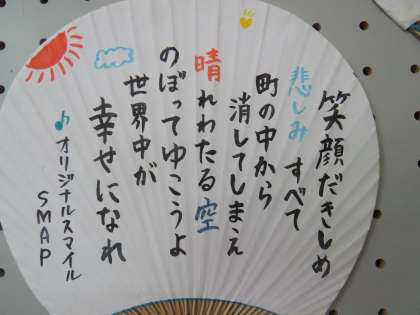 笑顔だきしめ
悲しみ すべて
町の中から
消してしまえ
晴れわたる空
のぼってゆこうよ
世界中が
幸せになれ
♪オリジナルスマイル
SMAP